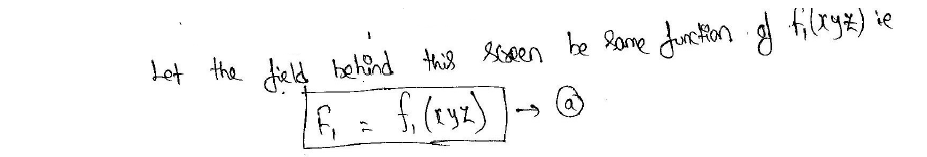 Let the field behind this screen be some function of f₁(xyz) ie
F₁ = f₁(xyz) → ⓐ